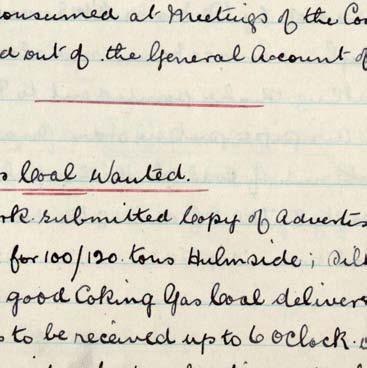 consumed at Meetings of the Co
d out of the General Account of
s Coal Wanted.
rk submitted Copy of Advertis
for 100/120 tons Hulmside;
good Coking Gas Coal deliver
s to be received up to 6 OClock